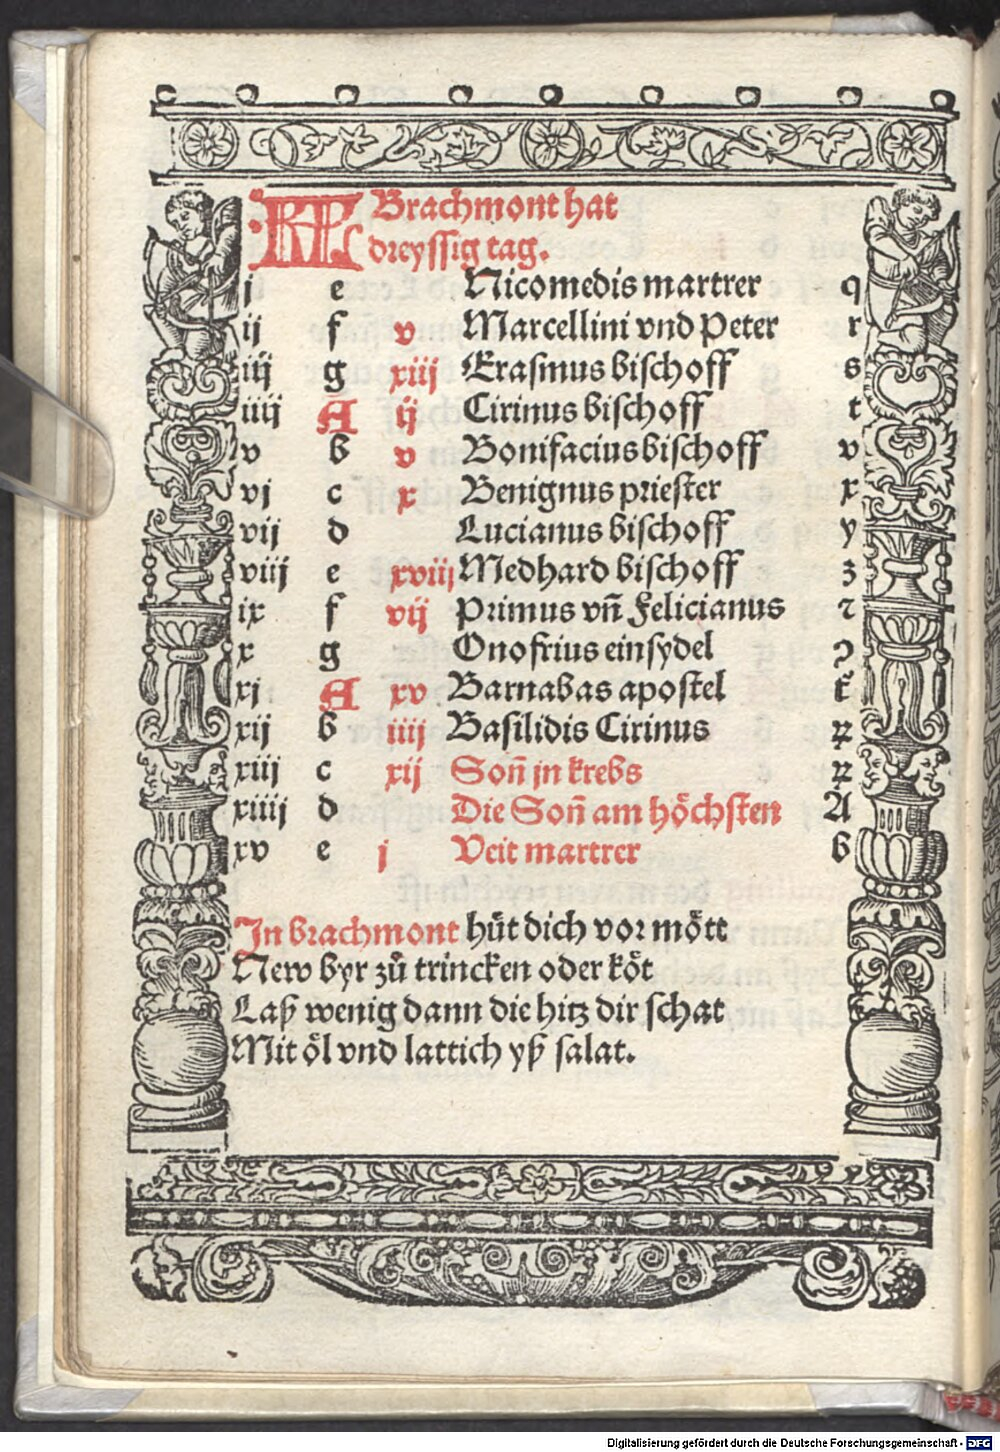 KL Brachmont hat
dreyssig tag.
j e Nicomedis martrer q
ij f v Marcellini vnd Peter r
iij g xiij Erasmus bischoff s
iiij A ij Cirinus bischoff t
v b v Bonifacius bischoff v
vj c x Benignus priester x
vij d Lucianus bischoff y
viij e xviij Medhard bischoff z
ix f vij Primus vñ Felicianus
x g Onofrius einsydel
xj A xv Barnabas apostel
xij b iiij Basilidis Cirinus
xiij c xij Soñ jn krebs
xiiij d Die Soñ am höchsten A
xv e j Veit martrer b
In brachmont hüt dich vor mött
New byr zů trincken oder köt
Laß wenig dann die hitz dir schat
Mit öl vnd lattich yß salat.
Digitalisierung gefördert durch die Deutsche Forschungsgemeinschaft - DFG